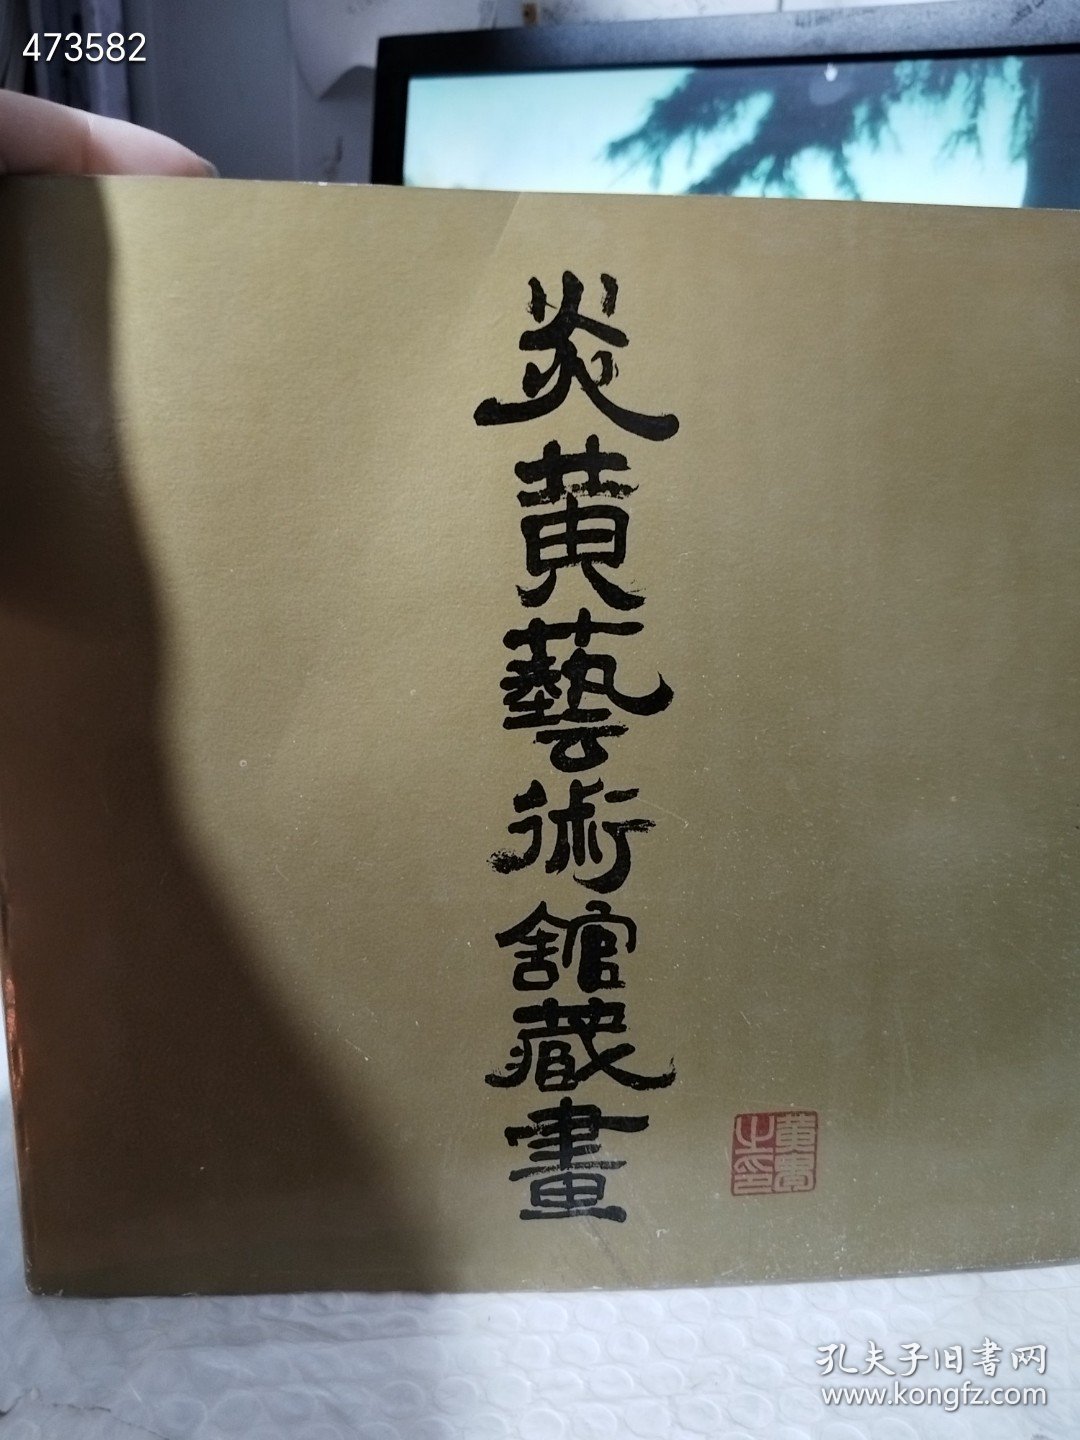 473582
炎黄藝術館藏畫
孔夫子旧書网
www.kongfz.com